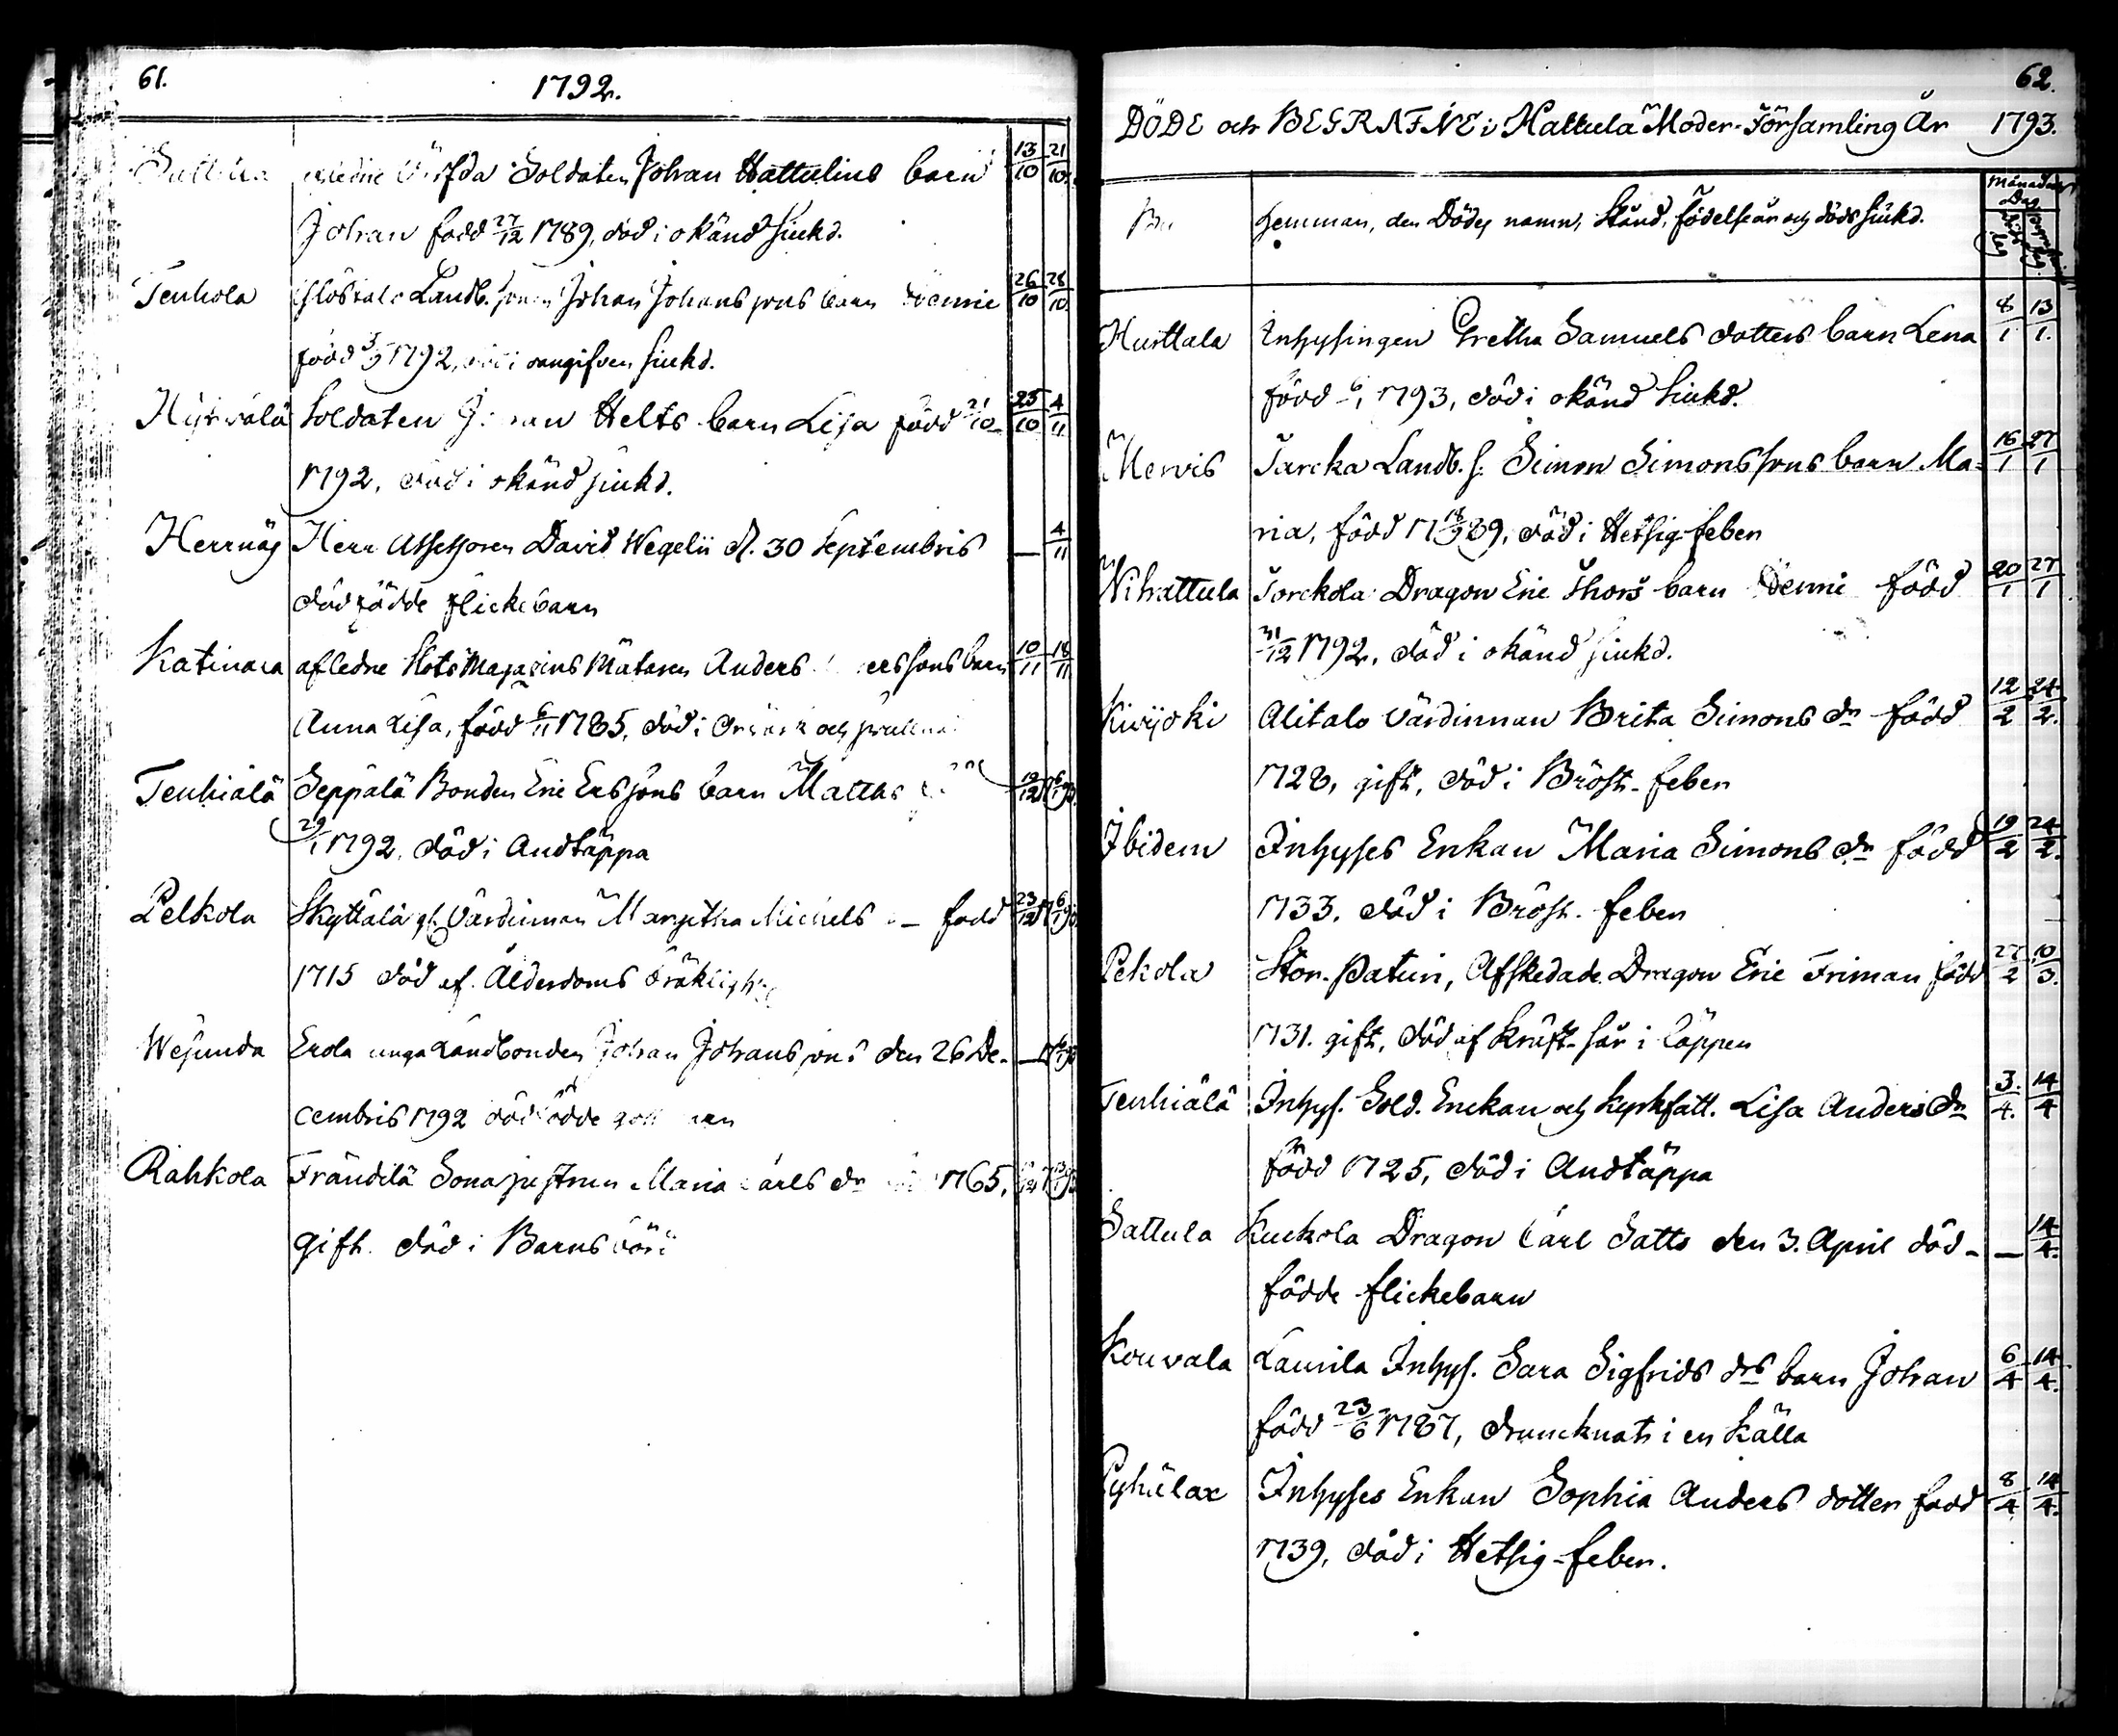 61.
1792.
Soldaten Johan Hattulins barn 13/10 21/10.
Johan född 27/12 1789, död i okänd siukd.
Tenhola Landb. Johan Johans sons barn 26/10 28/10.
född 1792, i oangifven siukd.
Soldaten Helts barn Lisa född 21/10 25/10 4/11
1792, död i okänd siukd.
Herrnäs Herr Assessoren David Wegelii d. 30 Septembris — 4/11
död födde flickebarn
Katinara afledne Slots Magazins Mätaren Anders barn 10/11 18/11
Anna Lisa, född 6/11 1785, död i och
Tenhiälä Seppälä Bonden Eric Ers sons barn Matths 12/12
29/1 1792, död i Andtäppa
Pelkola Skyttälä gl. Värdinnan Margetha Michels född 23/12
1715 död af Ålderdoms bräklighet
Wesunda Erola unga Landbonden Johan Johans sons den 26 De- —
cembris 1792 död födde
Rahkola Frändilä Maria Carls dr 1765,
gift. död i Barnsbörd
62.
DÖDE och BEGRAFNE i Hattula Moder-Församling År 1793.
Månadens
Dag
Hemman, den Dödes namn, Stånd, födelseår och döds siukd.
Hurttala Inhysingen Gretha Samuels dotters barn Lena 8/1 13/1.
född 6/1 1793, död i okänd siukd.
Mervis Jareka Landb. s. Simon Simons sons barn Ma- 16/1 27/1
ria, född 17 18/9 89, död i Hetsig feber
Nihattula Torckola Dragon Eric Thors barn född 20/1 27/1
31/12 1792, död i okänd siukd.
Kivijoki Alitalo Värdinnan Brita Simons dr född 12/2 24/2.
1728, gift, död i Bröst-feber
Ibidem Inhyses Enkan Maria Simons dr född 19/2 24/2.
1733. död i Bröst-feber
Pekola Stor-Paturi, Afskedade Dragon Eric Friman född 27/2 10/3.
1731. gift, död af kräft-sår i läppen
Tenhiälä Inhys. Sold. Enckan och kyrkfatt. Lisa Anders dr 3/4. 14/4
född 1725, död i Andtäppa
Sattula Kuckola Dragon Carl Satts den 3. April död- — 14/4.
födde flickebarn
Kouvala Laurila Inhys. Sara Sigfrids drs barn Johan 6/4 14/4.
född 23/6 1787, druncknat i en Källa
Pyhälax Inhyses Enkan Sophia Anders dotter född 8/4 14/4.
1739, död i Hetsig-feber.